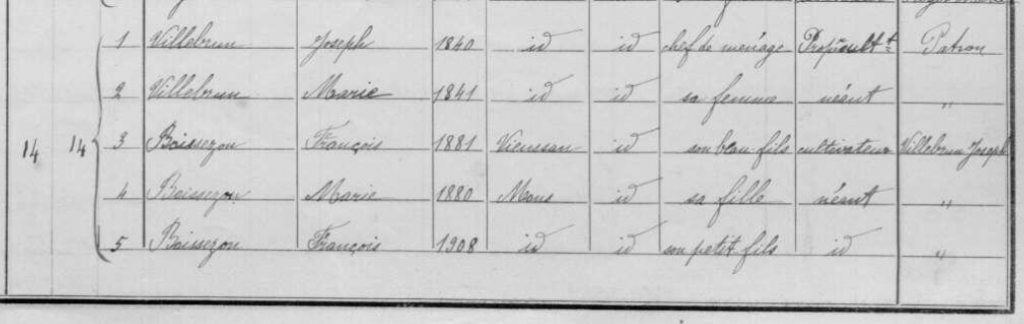 1 Villebrun Joseph 1840 id id chef de ménage Prop cult t Patron
2 Villebrun Marie 1841 id id sa femme néant "
14 14 3 Boissezon François 1881 Vieussan id son beau fils cultivateur Villebrun Joseph
4 Boissezon Marie 1880 Mons id sa fille néant "
5 Boissezon François 1908 id id son petit fils id "